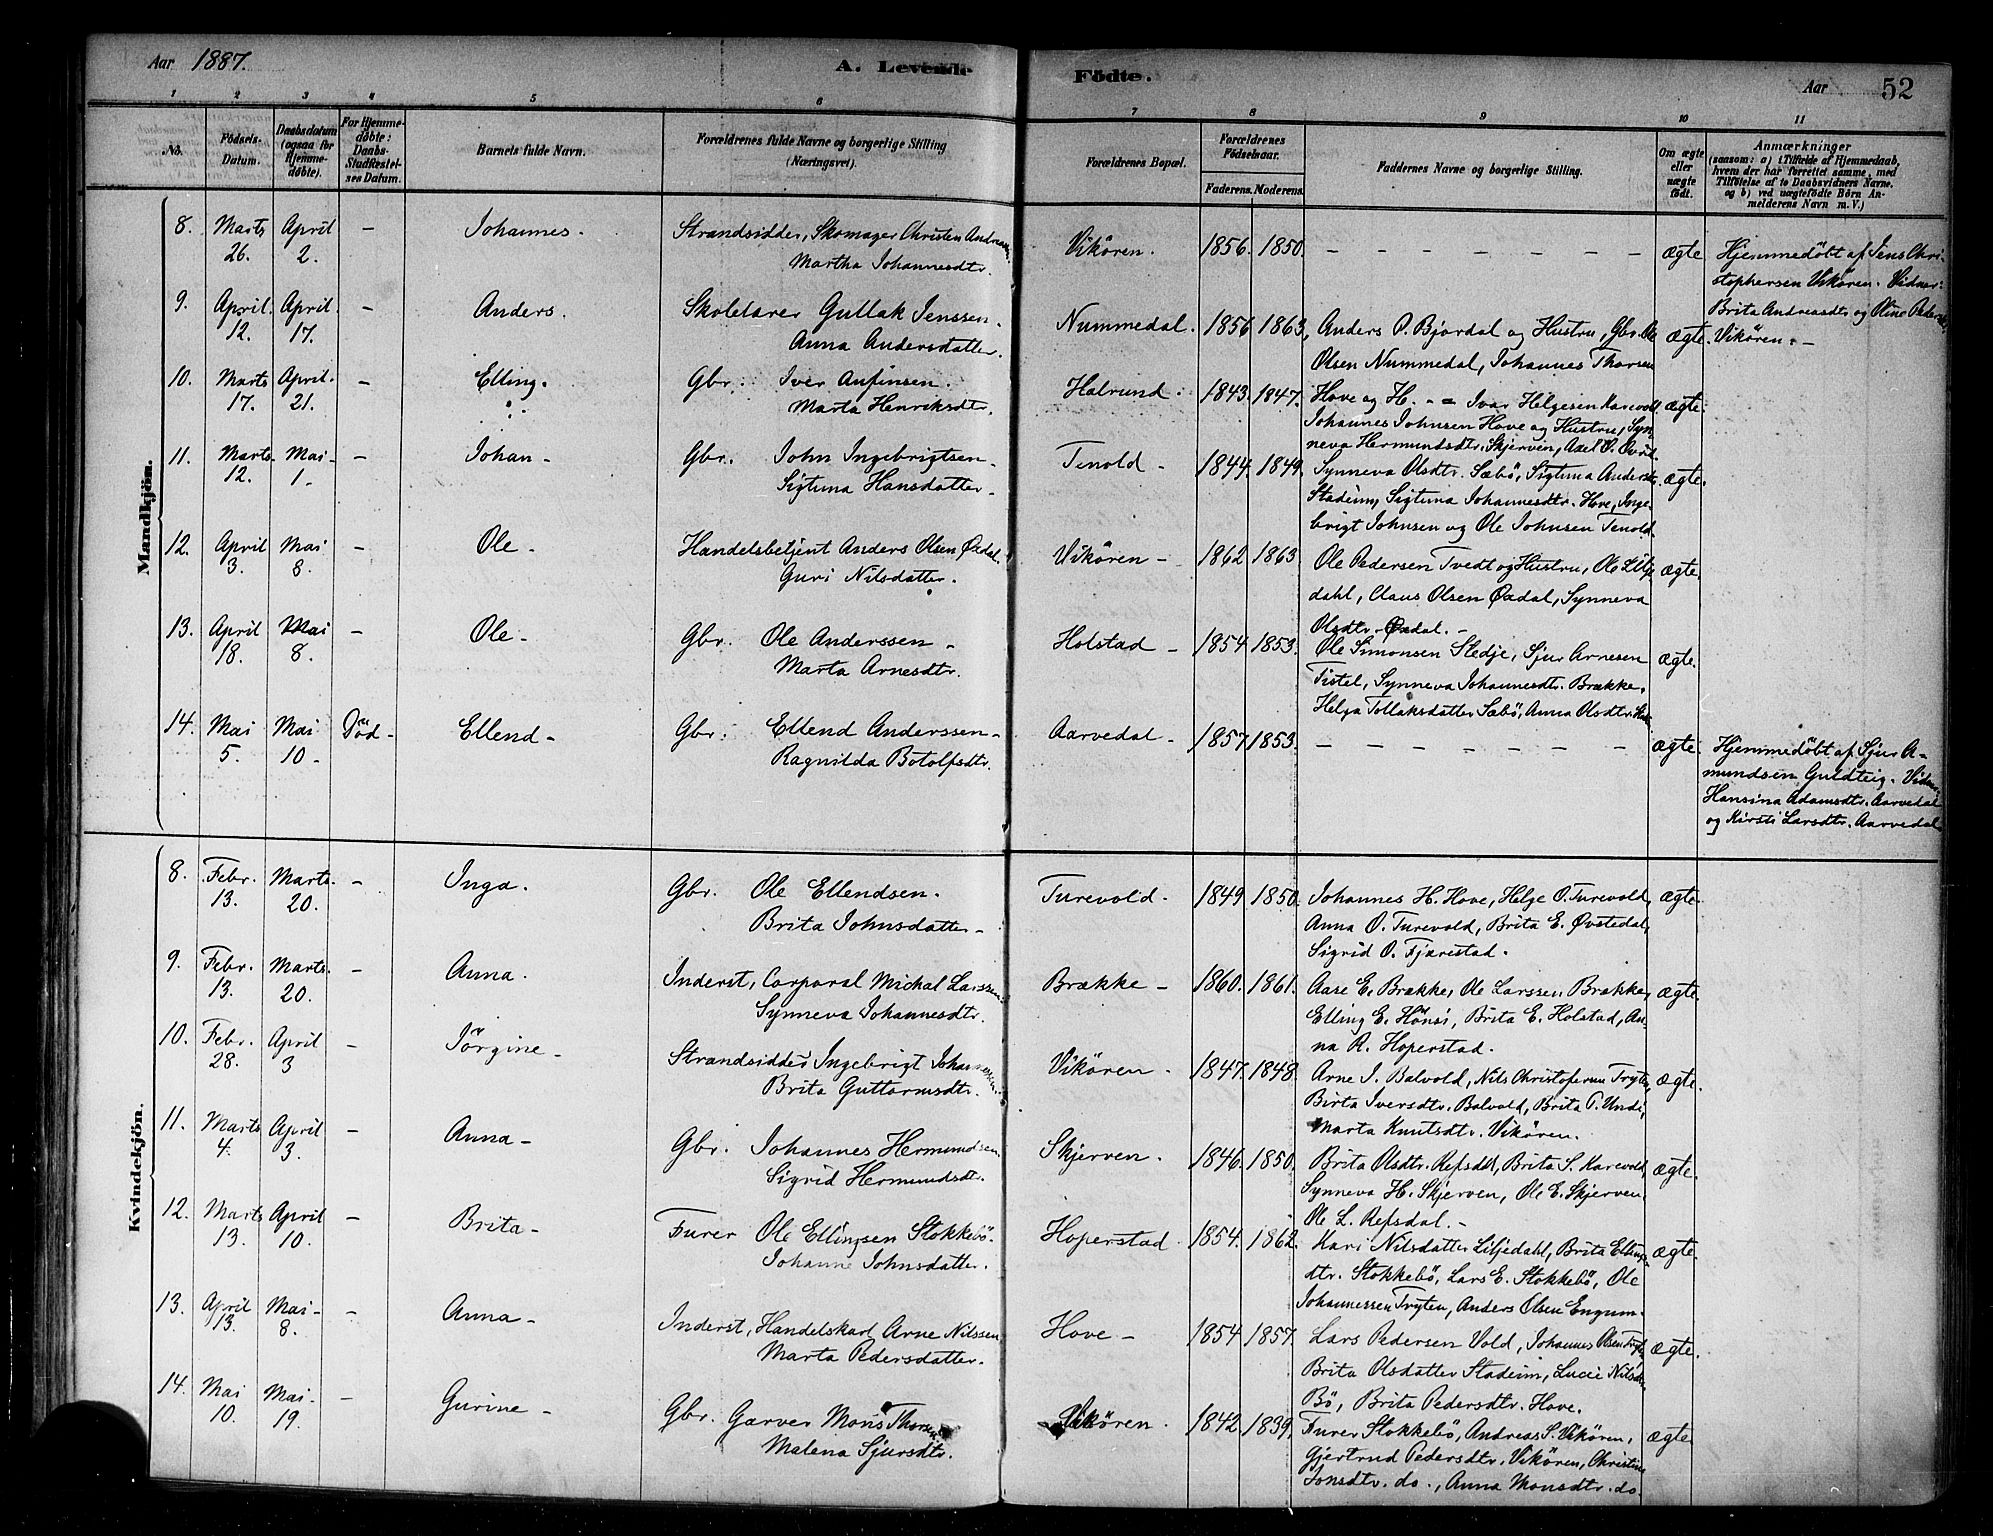 Aar 1887.
A. Levende Födte.
Aar 52
1 2 3 4 5 6 7 8 9 10 11
No.
Födsels-
Datum.
Daabsdatum
(ogsaa for
Hjemme-
döbte).
For Hjemme-
döbte:
Daabs-
Stadfæstel-
ses Datum.
Barnets fulde Navn.
Forældrenes fulde Navne og borgerlige Stilling
(Næringsvei).
Forældrenes Bopæl.
Forældrenes
Födselsaar.
Faderens. Moderens.
Faddernes Navne og borgerlige Stilling.
Om ægte
eller
uægte
födt.
Anmærkninger
(saasom: a) i Tilfælde af Hjemmedaab,
hvem der har forrettet samme, med
Tilföielse af to Daabsvidners Navne.
og b) ved uægtefödte Börn An-
melderens Navn m. V.)
Mandkjön.
8. Marts 26. April 2. – Johannes. Strandsidder, Skomager Christen
Martha Johannesdtr. Vikören. 1856. 1850. – – – – – – – ægte Hjemmedöbt af Jens Chri-
stophersen Vikören. Vidner:
Brita Andreasdtr og Oline
Vikören. –
9. April 12. April 17. – Anders. Skolelærer Gullak Jenssen.
Anna Andersdatter. Nummedal. 1856 1863, Anders P. Bjordal og Hustru, Gbr. Ole
Olsen Nummedal, Johannes Thorsen
Hove og H. ægte.
10. Marts 17. April. 21. – Elling. Gbr. Iver Anfinsen.
Marta Henriksdtr. Halrund. 1843. 1847. – = Ivar Helgesen Karevold
Johannes Johnsen Hove og Hustru, Syn-
neva Hermundsdtr. Skjerven, Axel O. ægte.
11. Marts. 12. Mai 1. – Johan – Gbr. John Ingebrigtsen –
Sigtuna Hansdatter – Tenold – 1844. 1849. Synneva Olsdtr. Sæbö, Sigtuna
Stadeim, Sigtuna Johannesdtr. Hove, Inge-
brigt Johnsen og Ole Johnsen Tenold. ægte.
12. April 3. Mai 8. – Ole – Handelsbetjent Anders Olsen Øxdal.
Guri Nilsdatter. Vikören – 1862 1863 Ole Pedersen Tvedt og Hustru, Ole
dahl, Claus Olsen Øxdal, Synneva
Olsdtr. Øxdal. – ægte.
13. April 18. Mai 8. – Ole – Gbr. Ole Anderssen –
Marta Arnesdtr. Holstad – 1854 1853. Ole Simonsen Sledje, Sjur Arnesen
Tistel, Synneva Johannesdtr. Brække.
Helga Tollaksdatter Sæbö, Anna Olsdtr. ægte.
14. Mai 5. Mai 10. Död – Ellend – Gbr. Ellend Anderssen –
Ragnilda Botolfsdtr. Aarvedal – 1857 1853. – – – – – – – ægte. Hjemmedöbt af Sjur A-
mundsen Guldteig.
Hansina Adamsdtr. Aarvedal
og Kirsti Larsdtr. Aarvedal
Kvindekjön.
8. Febr. 13. Marts. 20. – Inga. Gbr. Ole Ellendsen.
Brita Johnsdatter – Turevold. 1849 1850. Johannes H. Hove, Helge O. Turevold,
Anna O. Turevold, Brita E. Øvstedal,
Sigrid O. Fjærestad. ægte.
9. Febr. 13. Marts. 20. – Anna. Inderst, Corporal Michal Larssen
Synneva Johannesdtr. Brække – 1860. 1861. Aase E. Brække, Ole Larssen Brække,
Elling E. Hönsi, Brita E. Holstad, An-
na R. Hoperstad. ægte.
10. Febr. 28. April 3 – Jörgine – Strandsidder Ingebrigt Johannessen
Brita Guttormsdtr. Vikören. 1847. 1848. Arne I. Balvold, Nils Christophersen Tryten,
Birta Iversdtr. Balvold, Brita P. Undi,
Marta Knutsdtr. Vikören. ægte.
11. Marts 4. April 3. – Anna – Gbr. Johannes Hermundsen
Sigrid Hermundsdtr. Skjerven. 1846. 1850. Brita Olsdtr. Refsdal, Brita S. Karevold,
Synneva H. Skjerven, Ole E. Skjerven
Ole L. Refsdal. – ægte.
12. Marts 13. April 10. – Brita – Furer Ole Ellingsen Stokkebö.
Johanne Johnsdatter. Hoperstad. 1854. 1862. Kari Nilsdatter Liljedahl, Brita Ellings-
dtr. Stokkebö, Lars E. Stokkebö, Ole
Johannessen Tryten, Anders Olsen Engum. ægte.
13. April 13. Mai 8. – Anna – Inderst, Handelskarl Arne Nilssen
Marta Pedersdatter. Hove – 1854. 1857. Lars Pedersen Vold, Johannes Olsen
Brita Olsdatter Stadeim, Lucie
Bö, Brita Pedersdtr. Hove. ægte.
14. Mai 10. Mai 19. – Gurine – Gbr. Garver Mons
Malena Sjursdtr. Vikören. 1842. 1839. Furer Stokkebö, Andreas S. Vikören.
Gjertrud Pedersdtr. Vikören, Christine
Jonsdtr. do., Anna Monsdtr. do. ægte